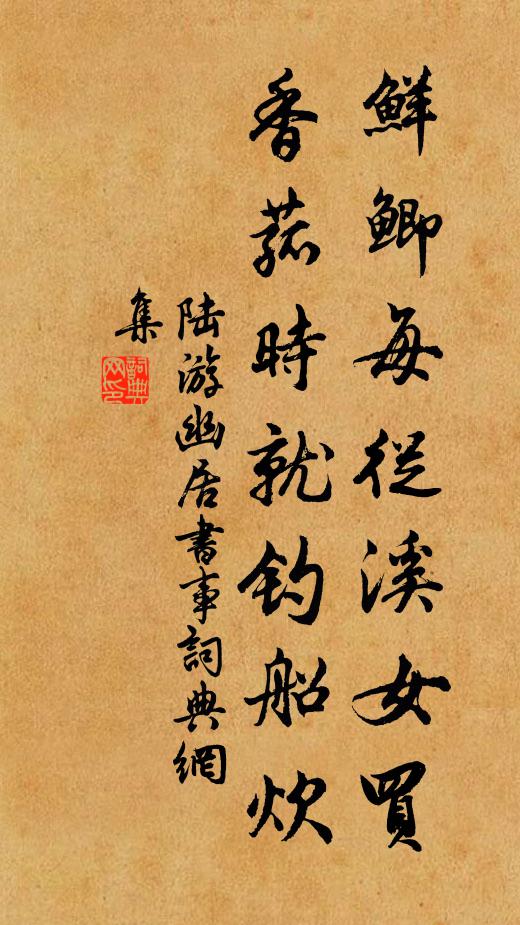 鮮鯽每從溪女買
香菰時就钓船炊
陆游幽居書事詞典網
集
詞典
网印